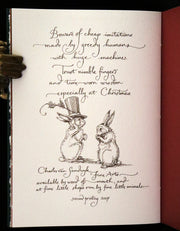 Beware of cheap imitations
made by greedy humans
with huge machines
Trust nimble fingers
and time-worn wisdom
especially at Christmas
Fine Arts
available by word of mouth, and
at fine little shops run by fine little animals